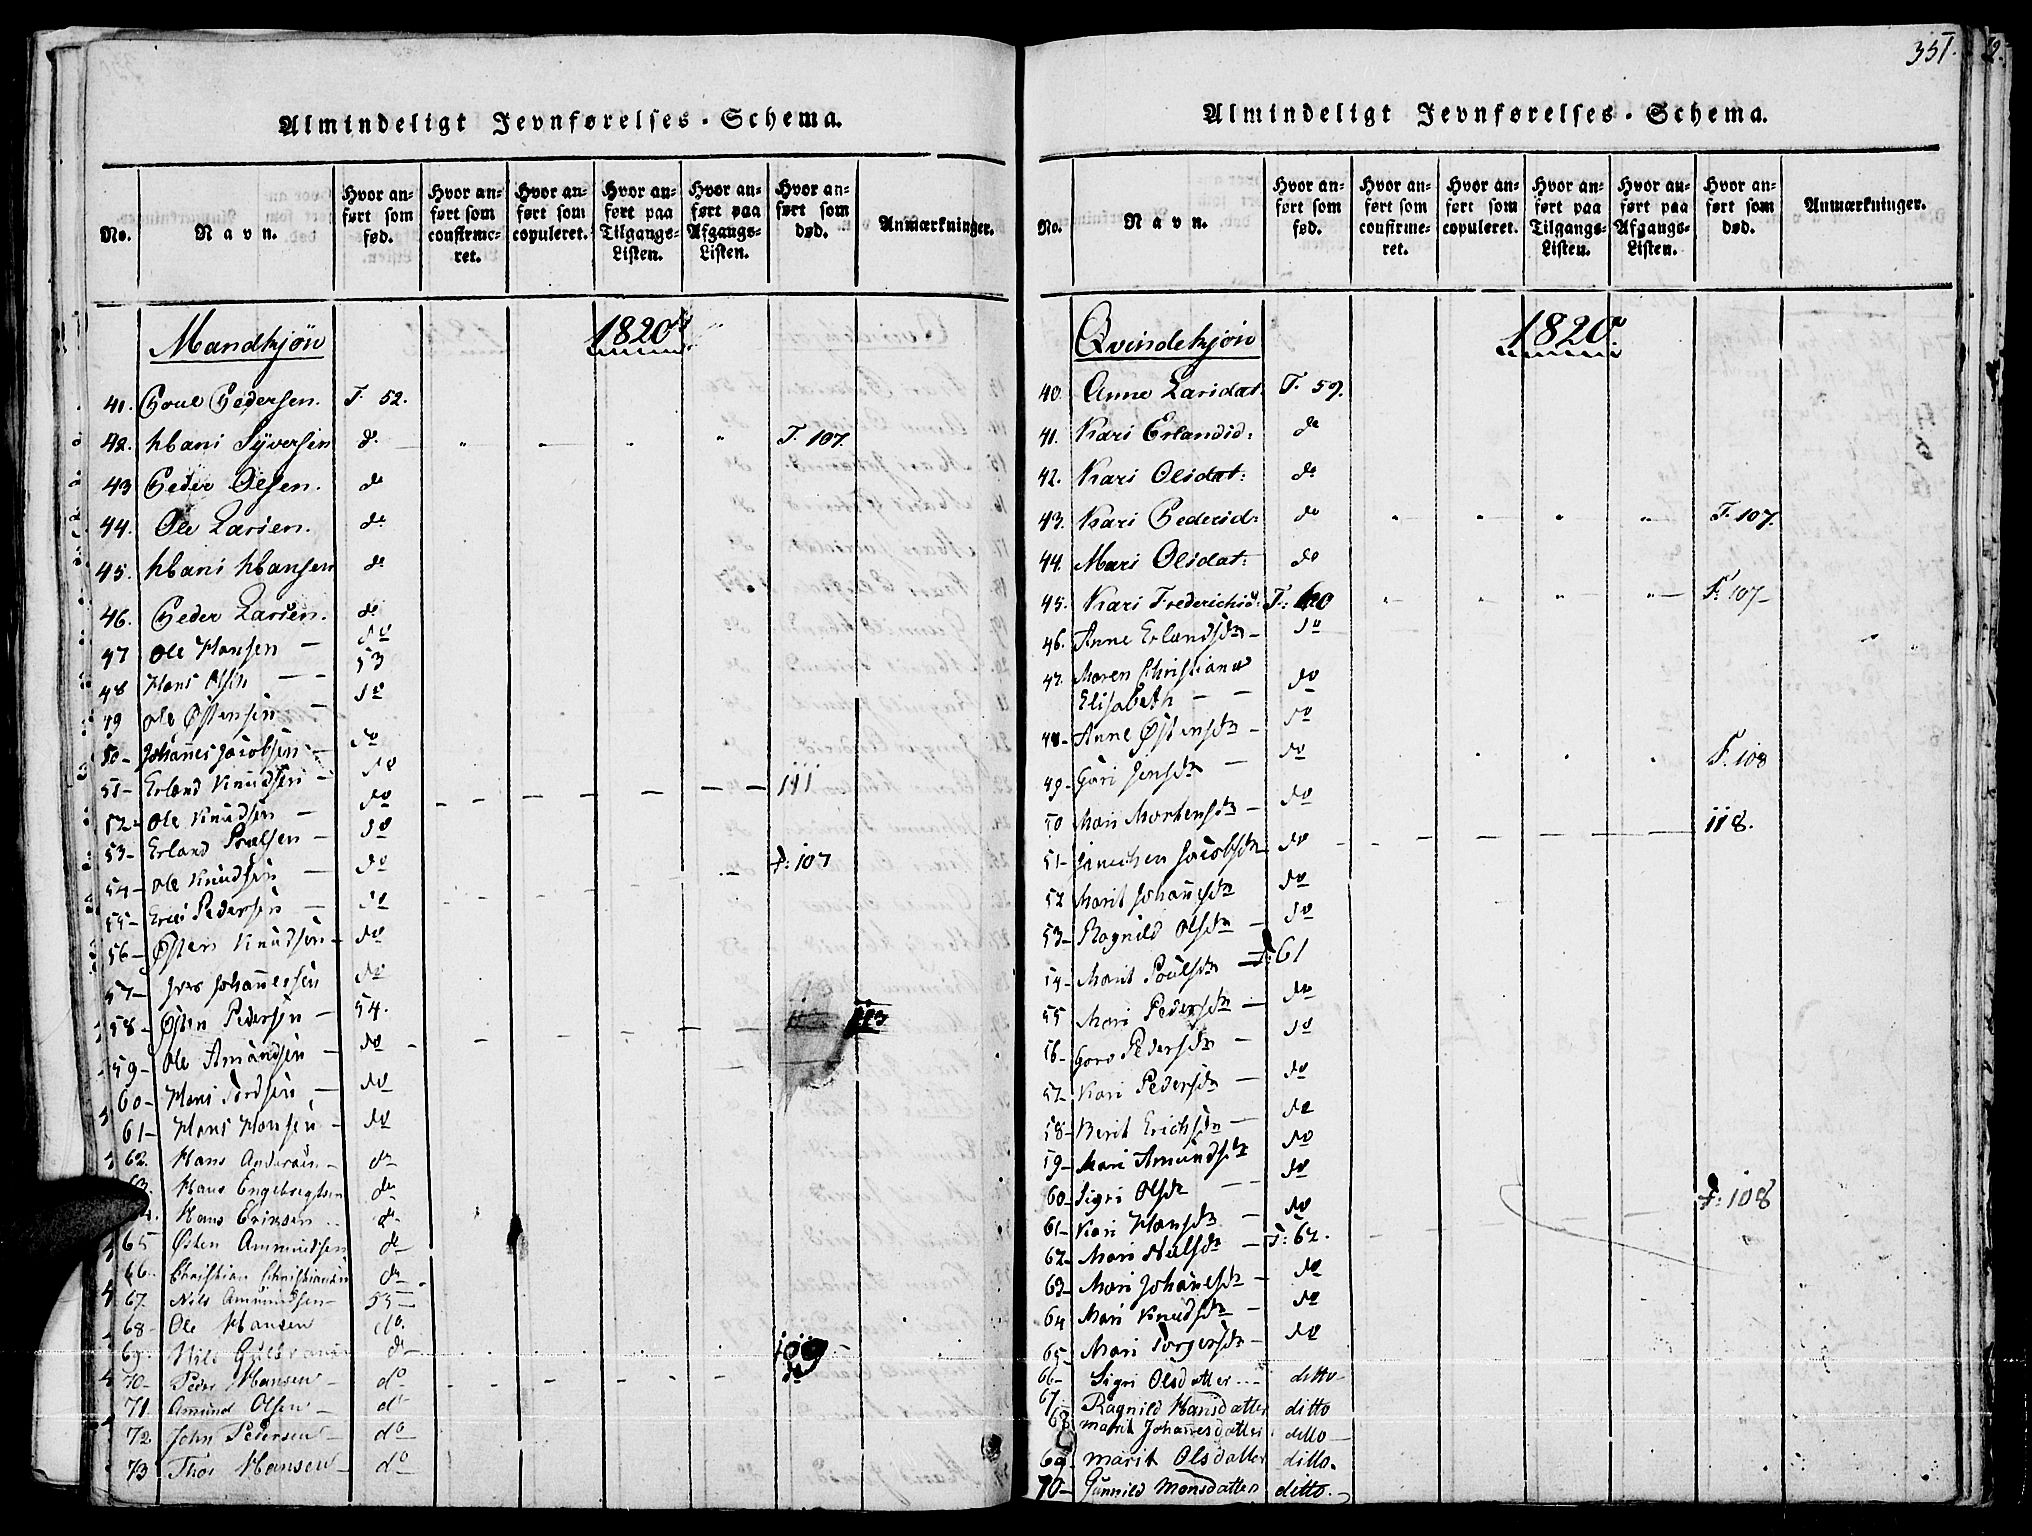 Almindeligt Jevnførelses-Schema.
No.
Navn.
Hvor an-
ført som
fød.
Hvor an-
ført som
confirme-
ret.
Hvor an-
ført som
copuleret.
Hvor an-
ført paa
Tilgangs-
Listen.
Hvor an-
ført paa
Afgangs-
Listen.
Hvor an-
ført som
død.
Anmærkninger.
Mandkjøn 1820
41. Poul Pedersen. F. 52.
42. Hans Syversen do F. 107.
43 Peder Olsen. do
44. Ole Larsen. do
45. Hans Hansen do
46. Peder Larsen. do
47 Ole Hansen - do
48 Hans Olsen - - 53
49 Ole Østensen - do
50- Johannes Jacobsen - do
51- Erland Knudsen - do 111
52- Ole Knudsen - do
53- Erland Poulsen - do
54- Ole Knudsen - do F: 107
55- Eric Pedersen - do
56- Østen Knudsen - do
57- Iver Johannessen do
58- Østen Pedersen - 54. 113
59- Ole Amundsen - do
60- Hans Tordsen - do
61- Hans Hansen - do
62. Hans Andersen - do
63. Hans Engebregtsen do
Hans Eriksen do
65 Østen Ammundsen do
66. Christian Christiansen do
67. Nils Ammundsen - 55
68- Ole Hansen do.
69. Nils do 109
70- Peder Hansen - do do
71. Amund Olsen - do
72 John Pedersen - do
73 Thor Hansen - do
351.
Almindeligt Jevnførelses-Schema.
No.
Navn.
Hvor an-
ført som
fød.
Hvor an-
ført som
confirme-
ret.
Hvor an-
ført som
copuleret.
Hvor an-
ført paa
Tilgangs-
Listen.
Hvor an-
ført paa
Afgangs-
Listen.
Hvor an-
ført som
død.
Anmærkninger.
Qvindekjøn 1820.
40. Anne Larsdat. F. 59.
41. Kari Erlandsd: do
42. Kari Olsdat: do
43. Kari Pedersd: do F. 107.
44. Mari Olsdat: do
45. Kari Frederichsd: F: 60 F: 107-
46. Anne Erlandsdr - do
47. Maren Christiane
Elisabeth - - do
48- Anne Østensdr - do
49- Gári Jensdr - do F. 108
50 Mari Mortensdr - do
51- Jacobsdr do 118.
52 Marit Johannesdr do
53- Ragnild Olsdr - do
54- Marit Poulsdr F: 61
55 Mari Pedersdr - do
56- Goro Pedersdr - do
57- Kari Pedersdr - do
58- Berit Erichsdr - do
59- Mari Amundsdr do
60- Sigri Olsdr - - do
61- Kari Hansdr - do F: 108
62- Mari Nilsdr - F: 62.
63- Mari Johannesdr - do
64 Mari Knudsdr - do
65- Mari Torgersdr - do
66- Sigri Olsdatter ditto
67- Ragnild Hansdatter ditto
68 Marit Johannesdatter ditto
69. Marit Olsdatter ditto.
70- Gunnild Monsdatter ditto.-